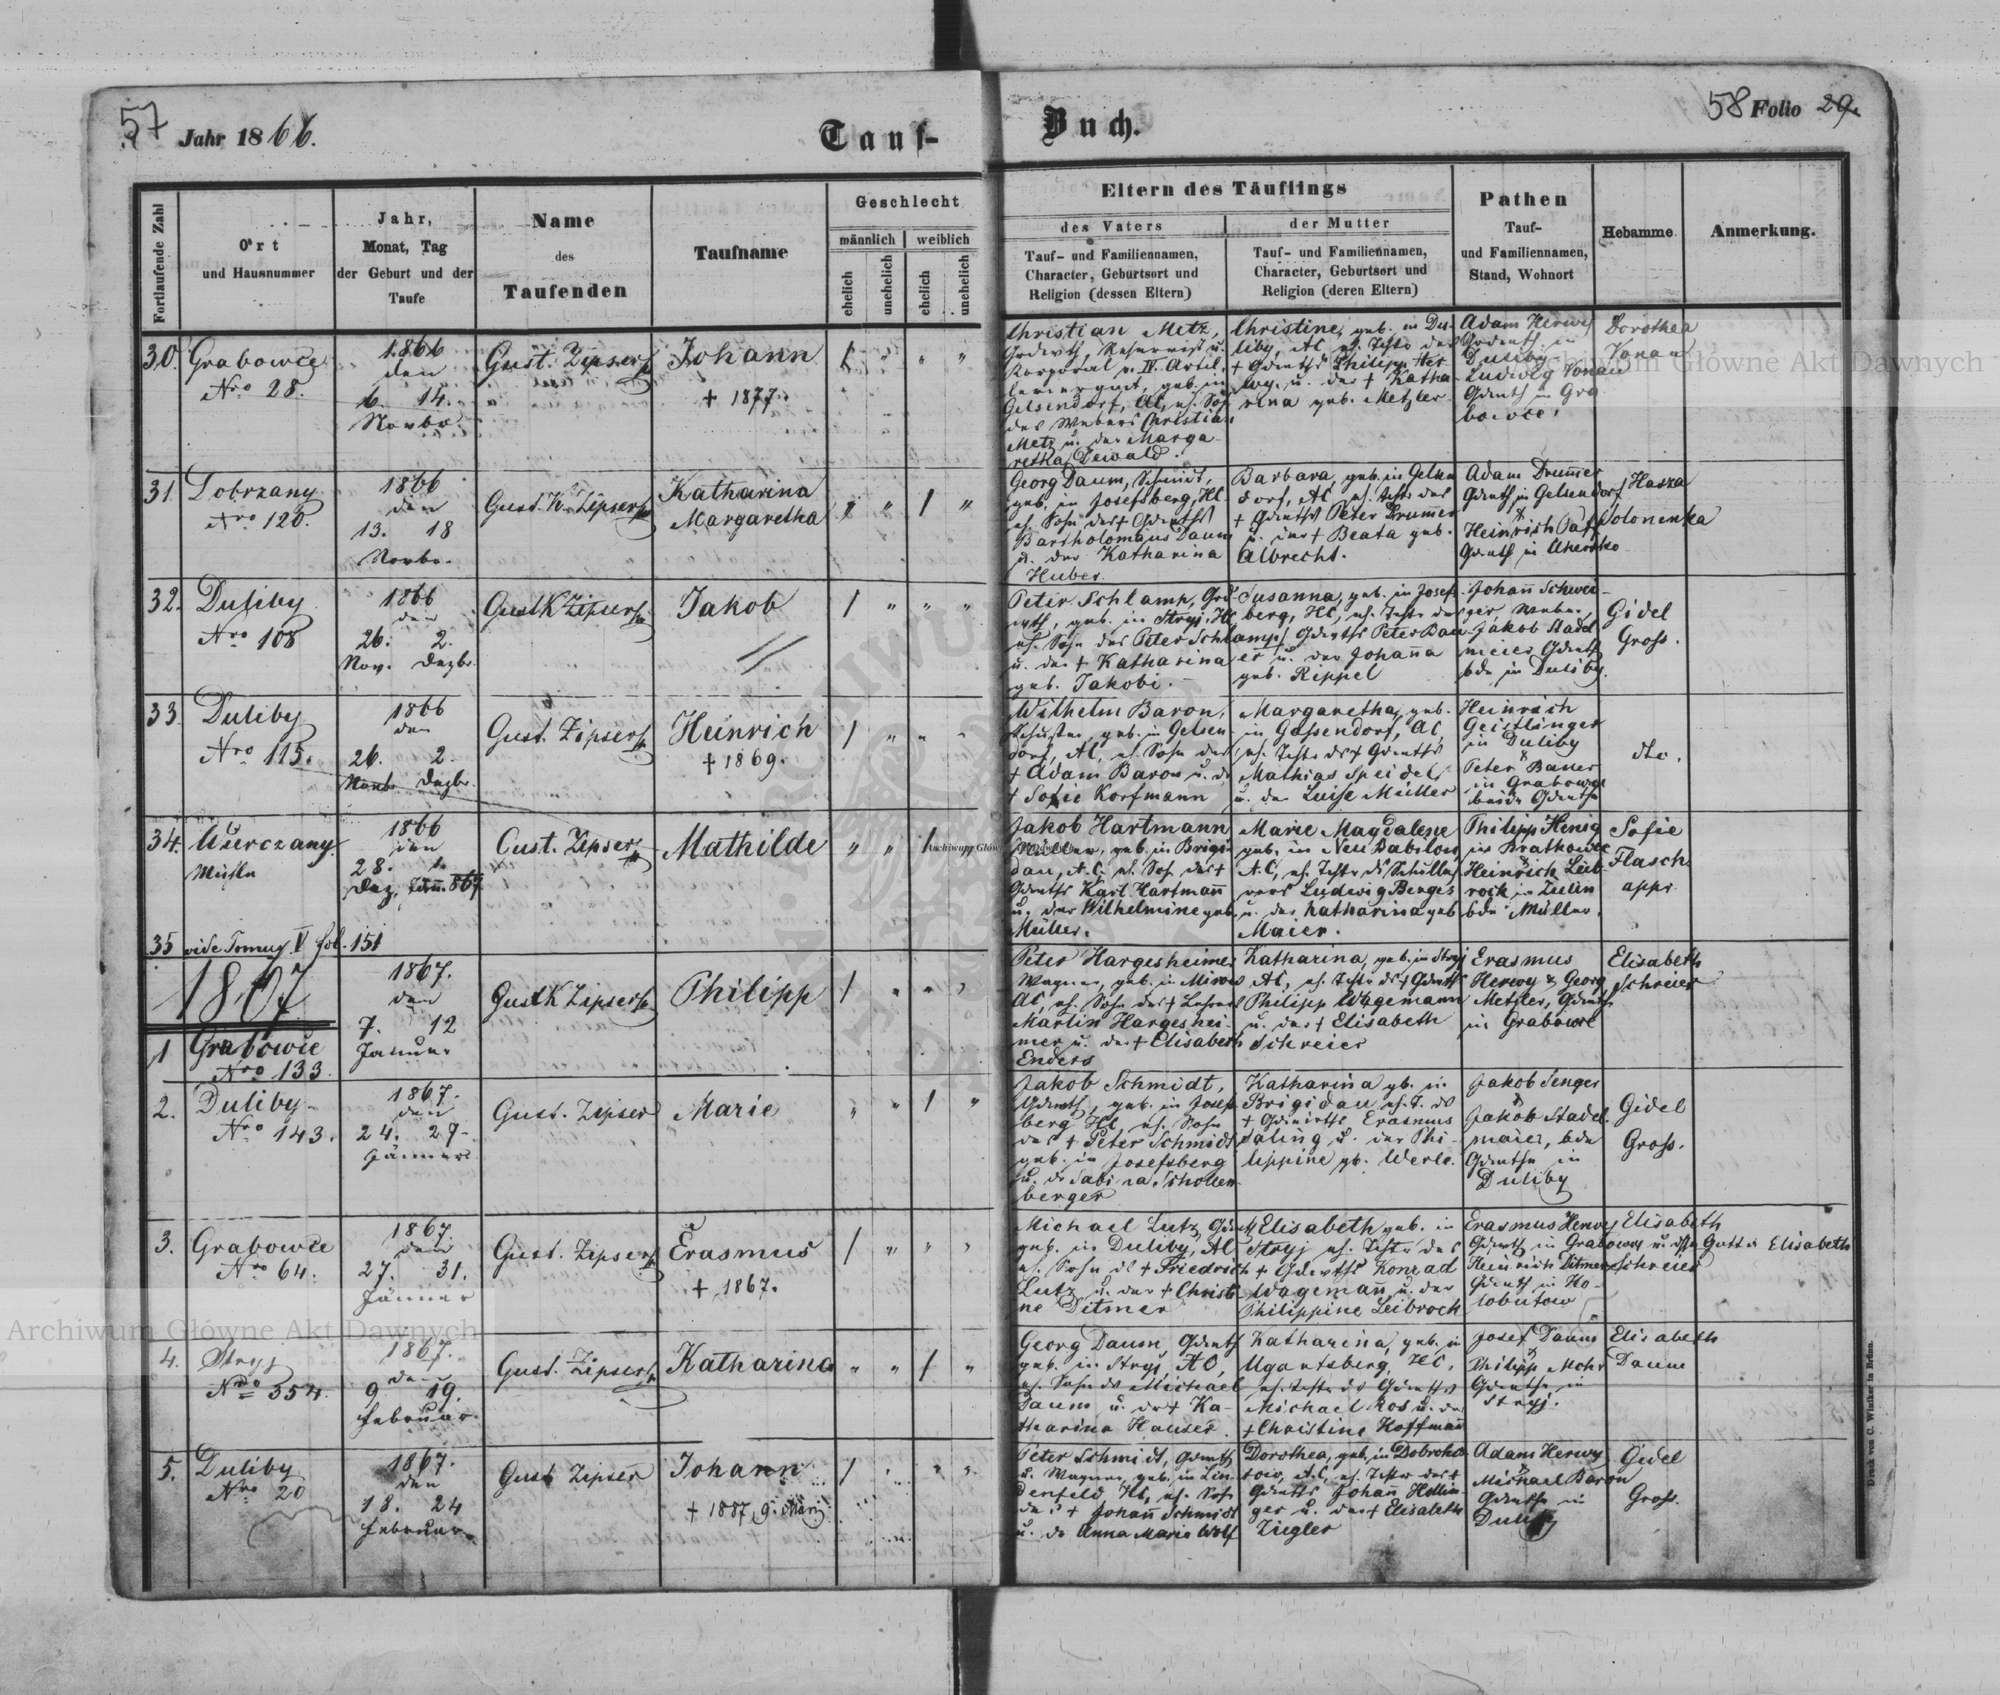 57
Jahr 1866.
Tauf-
Buch.
58 Folio 29.
Fortlaufende Zahl
Ort
und Hausnummer
Jahr,
Monat, Tag
der Geburt und der
Taufe
Name
des
Taufenden
Taufname
Geschlecht
männlich
weiblich
ehelich
unehelich
ehelich
unehelich
Eltern des Täuflings
des Vaters
Tauf- und Familiennamen,
Character, Geburtsort und
Religion (dessen Eltern)
der Mutter
Tauf- und Familiennamen,
Character, Geburtsort und
Religion (deren Eltern)
Pathen
Tauf-
und Familiennamen,
Stand, Wohnort
Hebamme
Anmerkung.
30.
Grabowce
Nro 28.
1866
den
6. 14.
Novbr.
Gust. Zipser
Johann
+ 1877.
Christian Metz,
Korporal
Gelsendorf, AC, eh. Sohn
des Webers Christian
Metz u. der Marga-
retha Dewald.
Christine, geb. in Du-
liby, AC
+ Philipp Her-
wy u. der + Katha-
rina geb. Metzler.
Adam Herwy
in
Duliby
Ludwig Vonau
in Gra
bowce.
Dorothea
Vonau
31.
Dobrzany
Nro 120.
1866
den
13. 18
Novbr.
Gust. K. Zipser
Katharina
Margaretha
Georg Daum, Schmidt,
geb. in Josefsberg, HC.
eh. Sohn des +
Bartholomäus Daum
u. der Katharina
Huber.
Barbara, geb. in Gelsen
dorf, AC eh. Tochter des
+ Peter Drummer
u. der + Beata geb.
Albrecht.
Adam Drummer
in Gelsendorf
Heinrich
in
Haska
Polonenka
32.
Duliby
Nro 108
1866
den
26. 2.
Nov. Dezbr.
Gust K Zipser
Jakob
Peter Schlamp,
geb. in Stryj, HC
eh. Sohn des Peter Schlamp
u. der + Katharina
geb. Jakobi.
Susanna, geb. in Josef
berg, HC, eh. Tochter des
Peter Bau
er u. der Johanna
geb. Rippel
Johann Schwei-
ger Weber,
Jakob Stadel
meier
bde in Duliby.
Gidel
Gross.
33.
Duliby
Nro 115.
1866
den
26. 2.
Novb. Dezbr.
Gust. Zipser
Heinrich
+ 1869.
Wilhelm Baron,
Schuster, geb. in Gelsen
dorf, AC, eh. Sohn des
+ Adam Baron u. d
+ Sofie Korfmann
Margaretha, geb.
in Gassendorf, AC,
Mathias Speidel
u. der Luise Müller
Heinrich
Geistlinger
in Duliby
Peter Bauer
in Grabowce
beide
dto.
34.
Wurczany
Mühle
1866
den
28. 1.
Dez. Jänn. 867
Gust. Zipser
Mathilde
Jakob Hartmann
Müller, geb. in Brigi-
dau, A.C. eh. Sohn des +
Karl Hartmann
u. der Wilhelmine geb.
Müller.
Marie Magdalene
geb. in Neu Babilon,
A.C., eh. Tochter d. Schulleh
rers Ludwig Berges
u. der Katharina geb
Maier.
Philipp Henig
in Bratkowce
Heinrich Leib-
rock in Zulin
bde Müller.
Sofie
Flasch
appr.
35 vide Tomus V fol. 151
1867
1
Grabowce
Nro 133
1867.
den
7. 12
Januar
Gust K Zipser
Philipp
Peter Hargesheimer
Wagner, geb. in
AC, eh. Sohn des + Lehrers
Martin Hargeshei-
mer u. der + Elisabeth
Enders
Katharina, geb. in Stryj
AC, eh. Tochter d. +
Philipp Wagemann
u. der + Elisabeth
Schreier
Erasmus
Herwy & Georg
Metzler,
in Grabowce
Elisabeth
Schreier
2.
Duliby
Nro 143.
1867.
den
24. 27.
Jänner
Gust. Zipser
Marie
Jakob Schmidt,
geb. in Josef
berg HC, eh. Sohn
des + Peter Schmidt
geb. in Josefsberg
u. d Sabina Schollen-
berger
Katharina gb. in
Brigidau eh. T. ds
+ Erasmus
Saling u. der Phi-
lippine gb. Werle.
Jakob Senger
Jakob Stadel
maier, bde
in
Duliby
Gidel
Gross.
3.
Grabowce
Nro 64.
1867.
den
27. 31.
Jänner
Gust. Zipser
Erasmus
+ 1867.
Michael Lutz,
geb. in Duliby, AC
eh. Sohn ds + Friedrich
Lutz u. der + Christi-
ne Ditmer
Elisabeth geb. in
Stryj eh. Tochter des
+ Konrad
Wagemann u. der
Philippine Leibrock
Erasmus Herwy
in Grabowce u. dssn Gattin Elisabeth
Heinrich Ditmer
in Ho-
lobutow
Elisabeth
Schreier
4.
Stryj
Nro 354.
1867.
den
9 19.
Februar.
Gust. Zipser
Katharina
Georg Daum,
geb. in Stryj AC,
eh. Sohn ds Michael
Daum u. der + Ka-
tharina Hauser.
Katharina, geb. in
Ugartsberg, HC,
eh. Tochter ds
Michael Kos u. der
+ Christine Hoffmann
Josef Daum
Philipp Mohr
in
Stryj.
Elisabeth
Daum
5.
Duliby
Nro 20
1867.
den
18. 24
Februar.
Gust Zipser
Johann
+ 1887 9. März
Peter Schmidt,
u. Wagner, geb. in Lin-
denfeld HC, eh. Sohn
des + Johann Schmidt
u. d. Anna Maria Wolf
Dorothea, geb. in Dobroho
tow, AC, eh. Tochter des +
Johann Hellin-
ger u. der + Elisabeth
Ziegler
Adam Herwy
Michael Baron
in
Duliby
Gidel
Gross.
Archiwum Główne Akt Dawnych
Archiwum Główne Akt Dawnych
Druck von C. Winiker in Brünn.